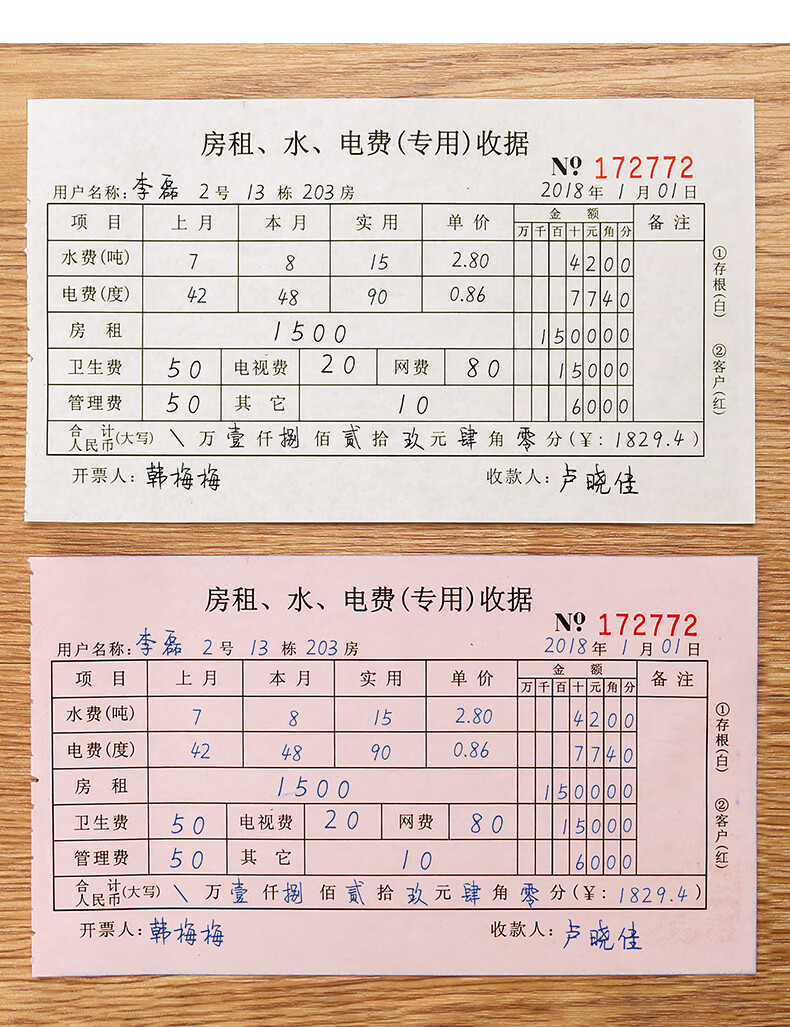 房租、水、电费(专用)收据
Nº 172772
用户名称: 李磊 2号 13栋 203房 2018年1月01日
项目 上月 本月 实用 单价 金额 备注
万 千 百 十 元 角 分
水费(吨) 7 8 15 2.80 4200
电费(度) 42 48 90 0.86 7740
房租 1500 150000
卫生费 50 电视费 20 网费 80 15000
管理费 50 其它 10 6000
合计人民币(大写) \ 万 壹 仟 捌 佰 贰 拾 玖 元 肆 角 零 分 (¥: 1829.4)
开票人: 韩梅梅 收款人: 卢晓佳
①存根(白) ②客户(红)
房租、水、电费(专用)收据
Nº 172772
用户名称: 李磊 2号 13栋 203房 2018年1月01日
项目 上月 本月 实用 单价 金额 备注
万 千 百 十 元 角 分
水费(吨) 7 8 15 2.80 4200
电费(度) 42 48 90 0.86 7740
房租 1500 150000
卫生费 50 电视费 20 网费 80 15000
管理费 50 其它 10 6000
合计人民币(大写) \ 万 壹 仟 捌 佰 贰 拾 玖 元 肆 角 零 分 (¥: 1829.4)
开票人: 韩梅梅 收款人: 卢晓佳
①存根(白) ②客户(红)